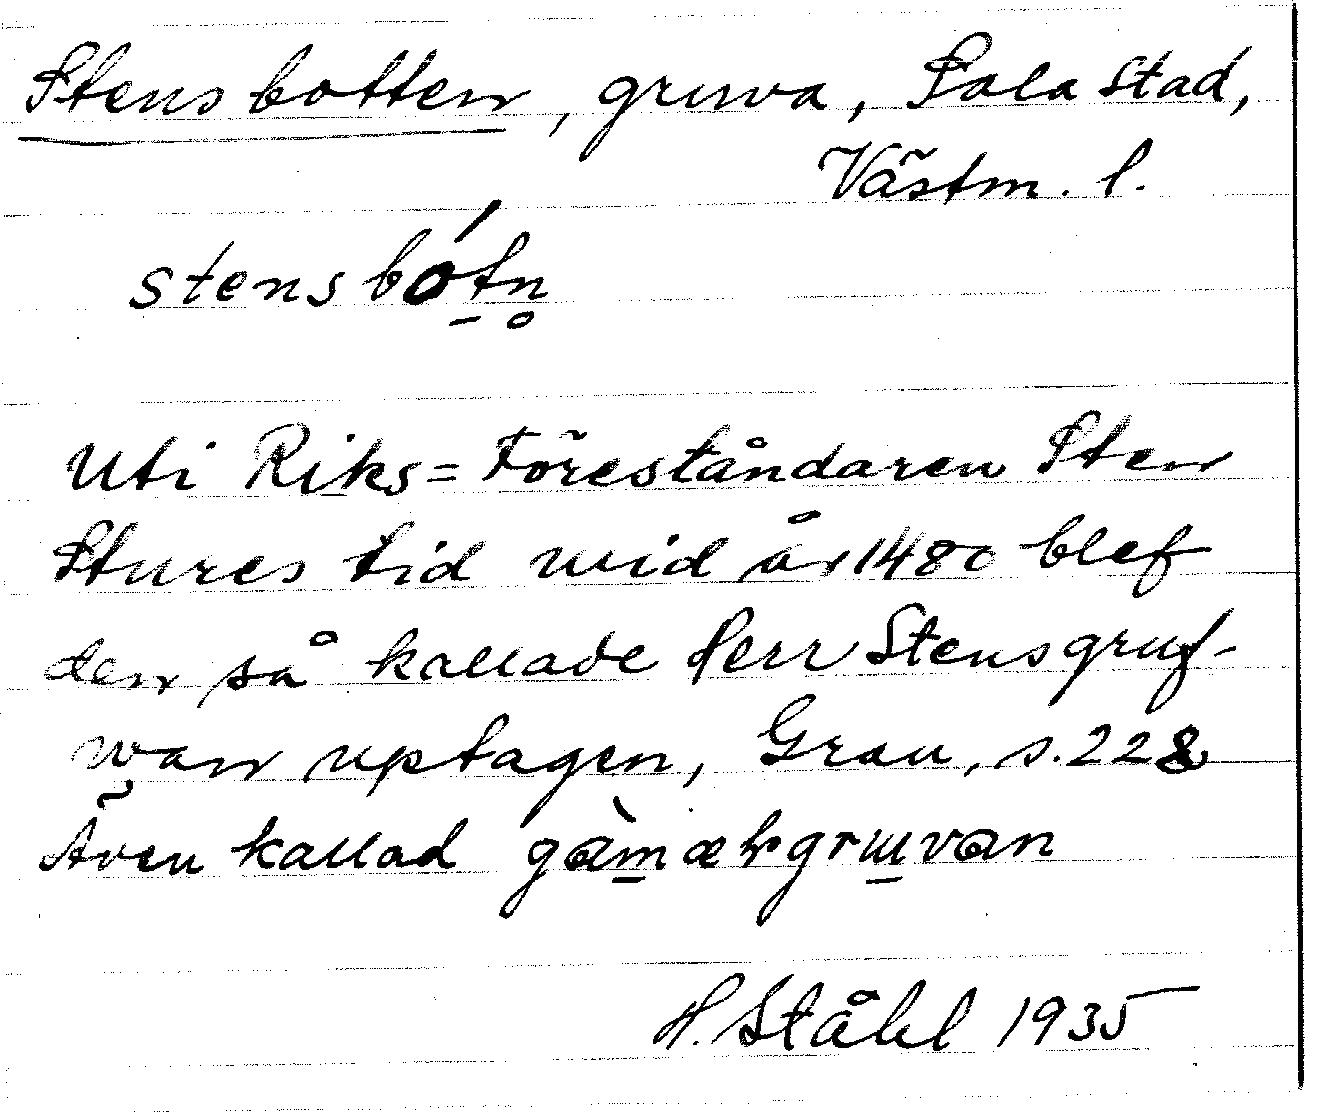 Stensbotten, gruva, Sala stad,
Västm. l.
stensbótn̥
Uti Riks=Föreståndaren Sten
Stures tid wid år 1480 blef
den så kallade Herr Stens gruf-
wan uptagen, Grau, s. 228
Även kallad gàm̲ælgru̲van
H. Ståhl 1935